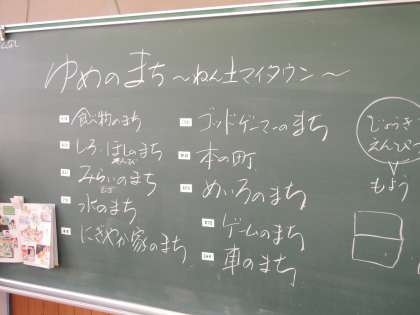 ゆめのまち～ねん土マイタウン～
食べ物のまち
しろ・ほしのまち
みらいのまち
水のまち
にぎやか家のまち
ゴッドゲーマーのまち
本の町
めいろのまち
ゲームのまち
車のまち
じょうぎ
えんぴつ
もよう